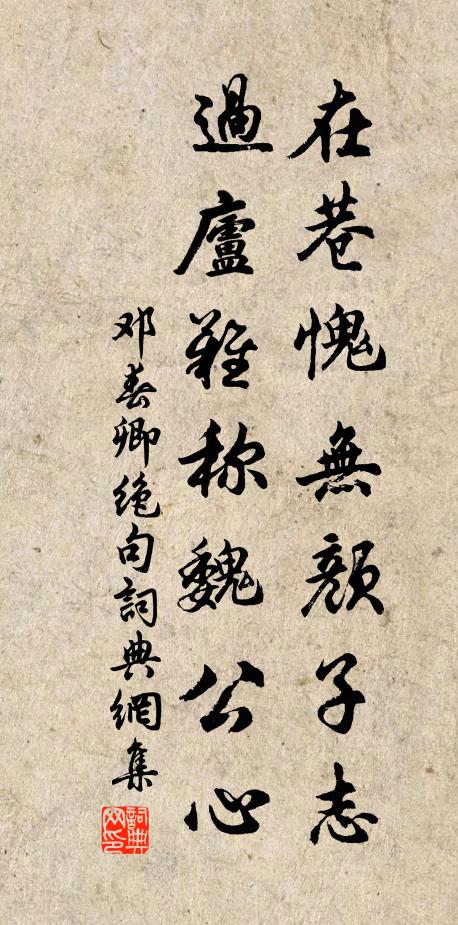 在巷愧無顏子志
過廬難称魏公心
邓春卿绝句詞典網集
詞典网印